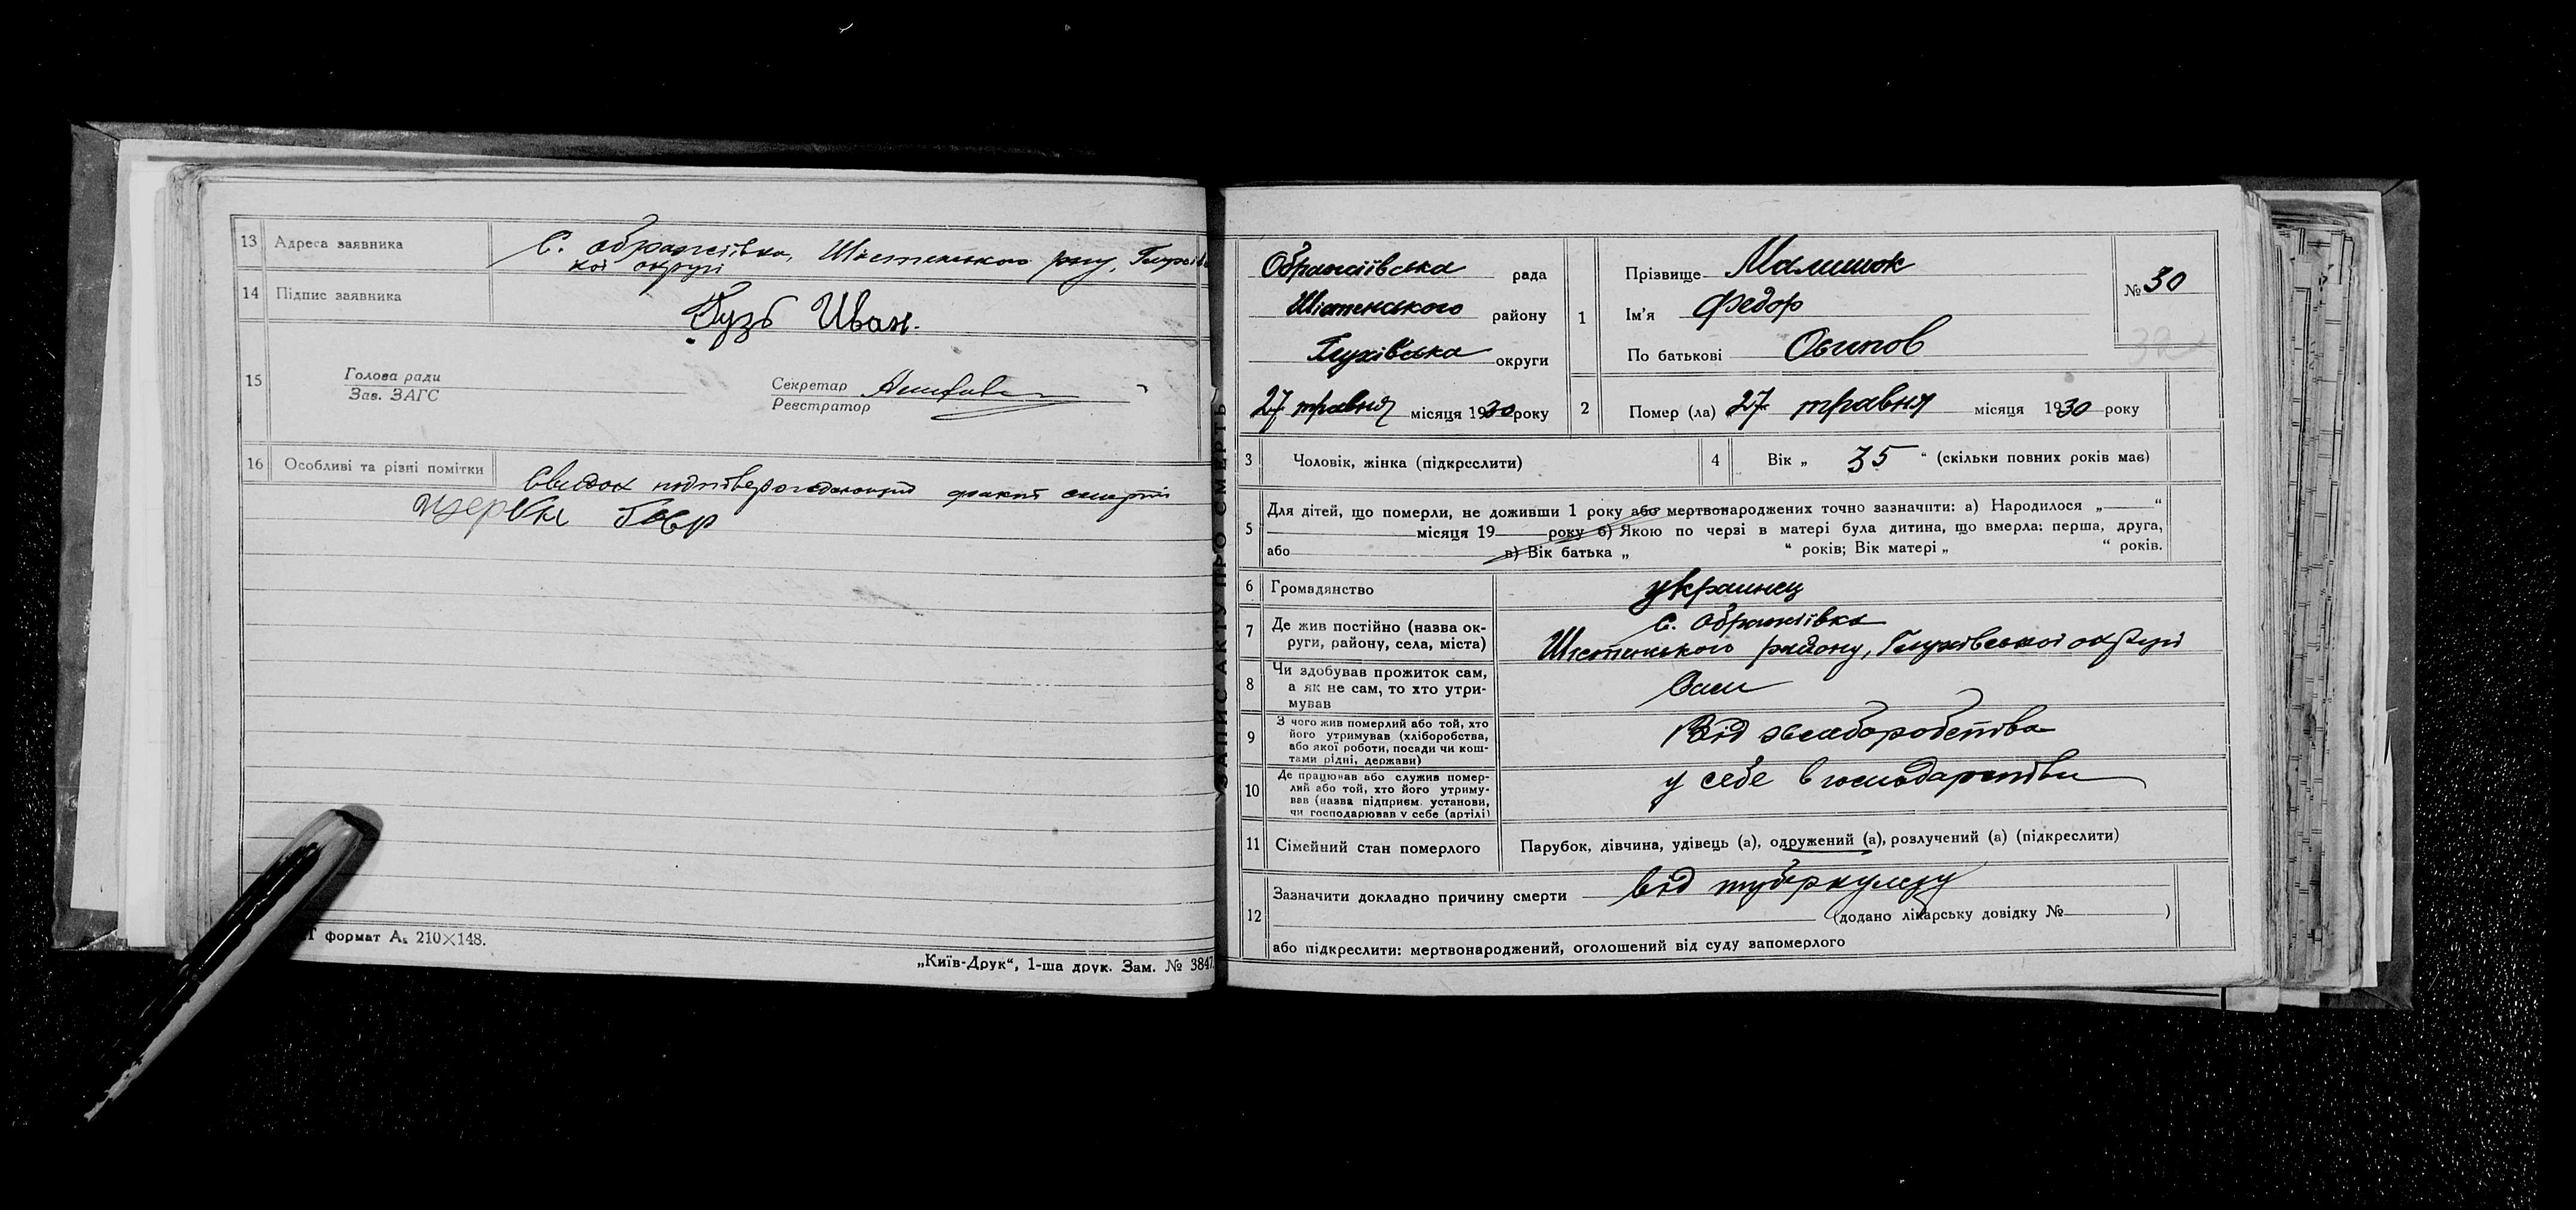 13 Адреса заявника С. Ображіївка, Шистенського р-ну, Глухівсь
кої округі
14 Підпис заявника
Кузь Иван.
15 Голова ради
Зав. ЗАГС
Секретар
Реєстратор
16 Особливі та різні помітки
Свидок подтіверждающий факт смерті
формат А₅ 210×148.
„Київ-Друк“, 1-ша друк. Зам. № 3847.
ЗАПИС АКТУ ПРО СМЕРТЬ
Ображіївська рада
Шистенського району
Глухівська округи
27 травня місяця 1930 року
1 Прізвище Малишок
Ім’я Федор
По батькові Осипов
№ 30
2 Помер (ла) 27 травня місяця 1930 року
3 Чоловік, жінка (підкреслити)
4 Вік „ 35 “ (скільки повних років має)
5 Для дітей, що померли, не доживши 1 року або мертвонароджених точно зазначити: а) Народилося „ “
місяця 19 року б) Якою по черзі в матері була дитина, що вмерла: перша, друга,
або в) Вік батька „ “ років; Вік матері „ “ років.
6 Громадянство украинец
7 Де жив постійно (назва ок-
руги, району, села, міста)
с. Ображіївка
Шистенського району, Глухівської округі
8 Чи здобував прожиток сам,
а як не сам, то хто утри-
мував
Сам
9 З чого жив померлий або той, хто
його утримував (хліборобства,
або якої роботи, посади чи кош-
тами рідні, держави)
Від хлеборобства
10 Де працював або служив помер-
лий або той, хто його утриму-
вав (назва підприєм. установи,
чи господарював у себе (артілі)
у себе в господарстви
11 Сімейний стан померлого Парубок, дівчина, удівець (а), одружений (а), розлучений (а) (підкреслити)
12 Зазначити докладно причину смерти від туберкулезу
(додано лікарську довідку № )
або підкреслити: мертвонароджений, оголошений від суду запомерлого